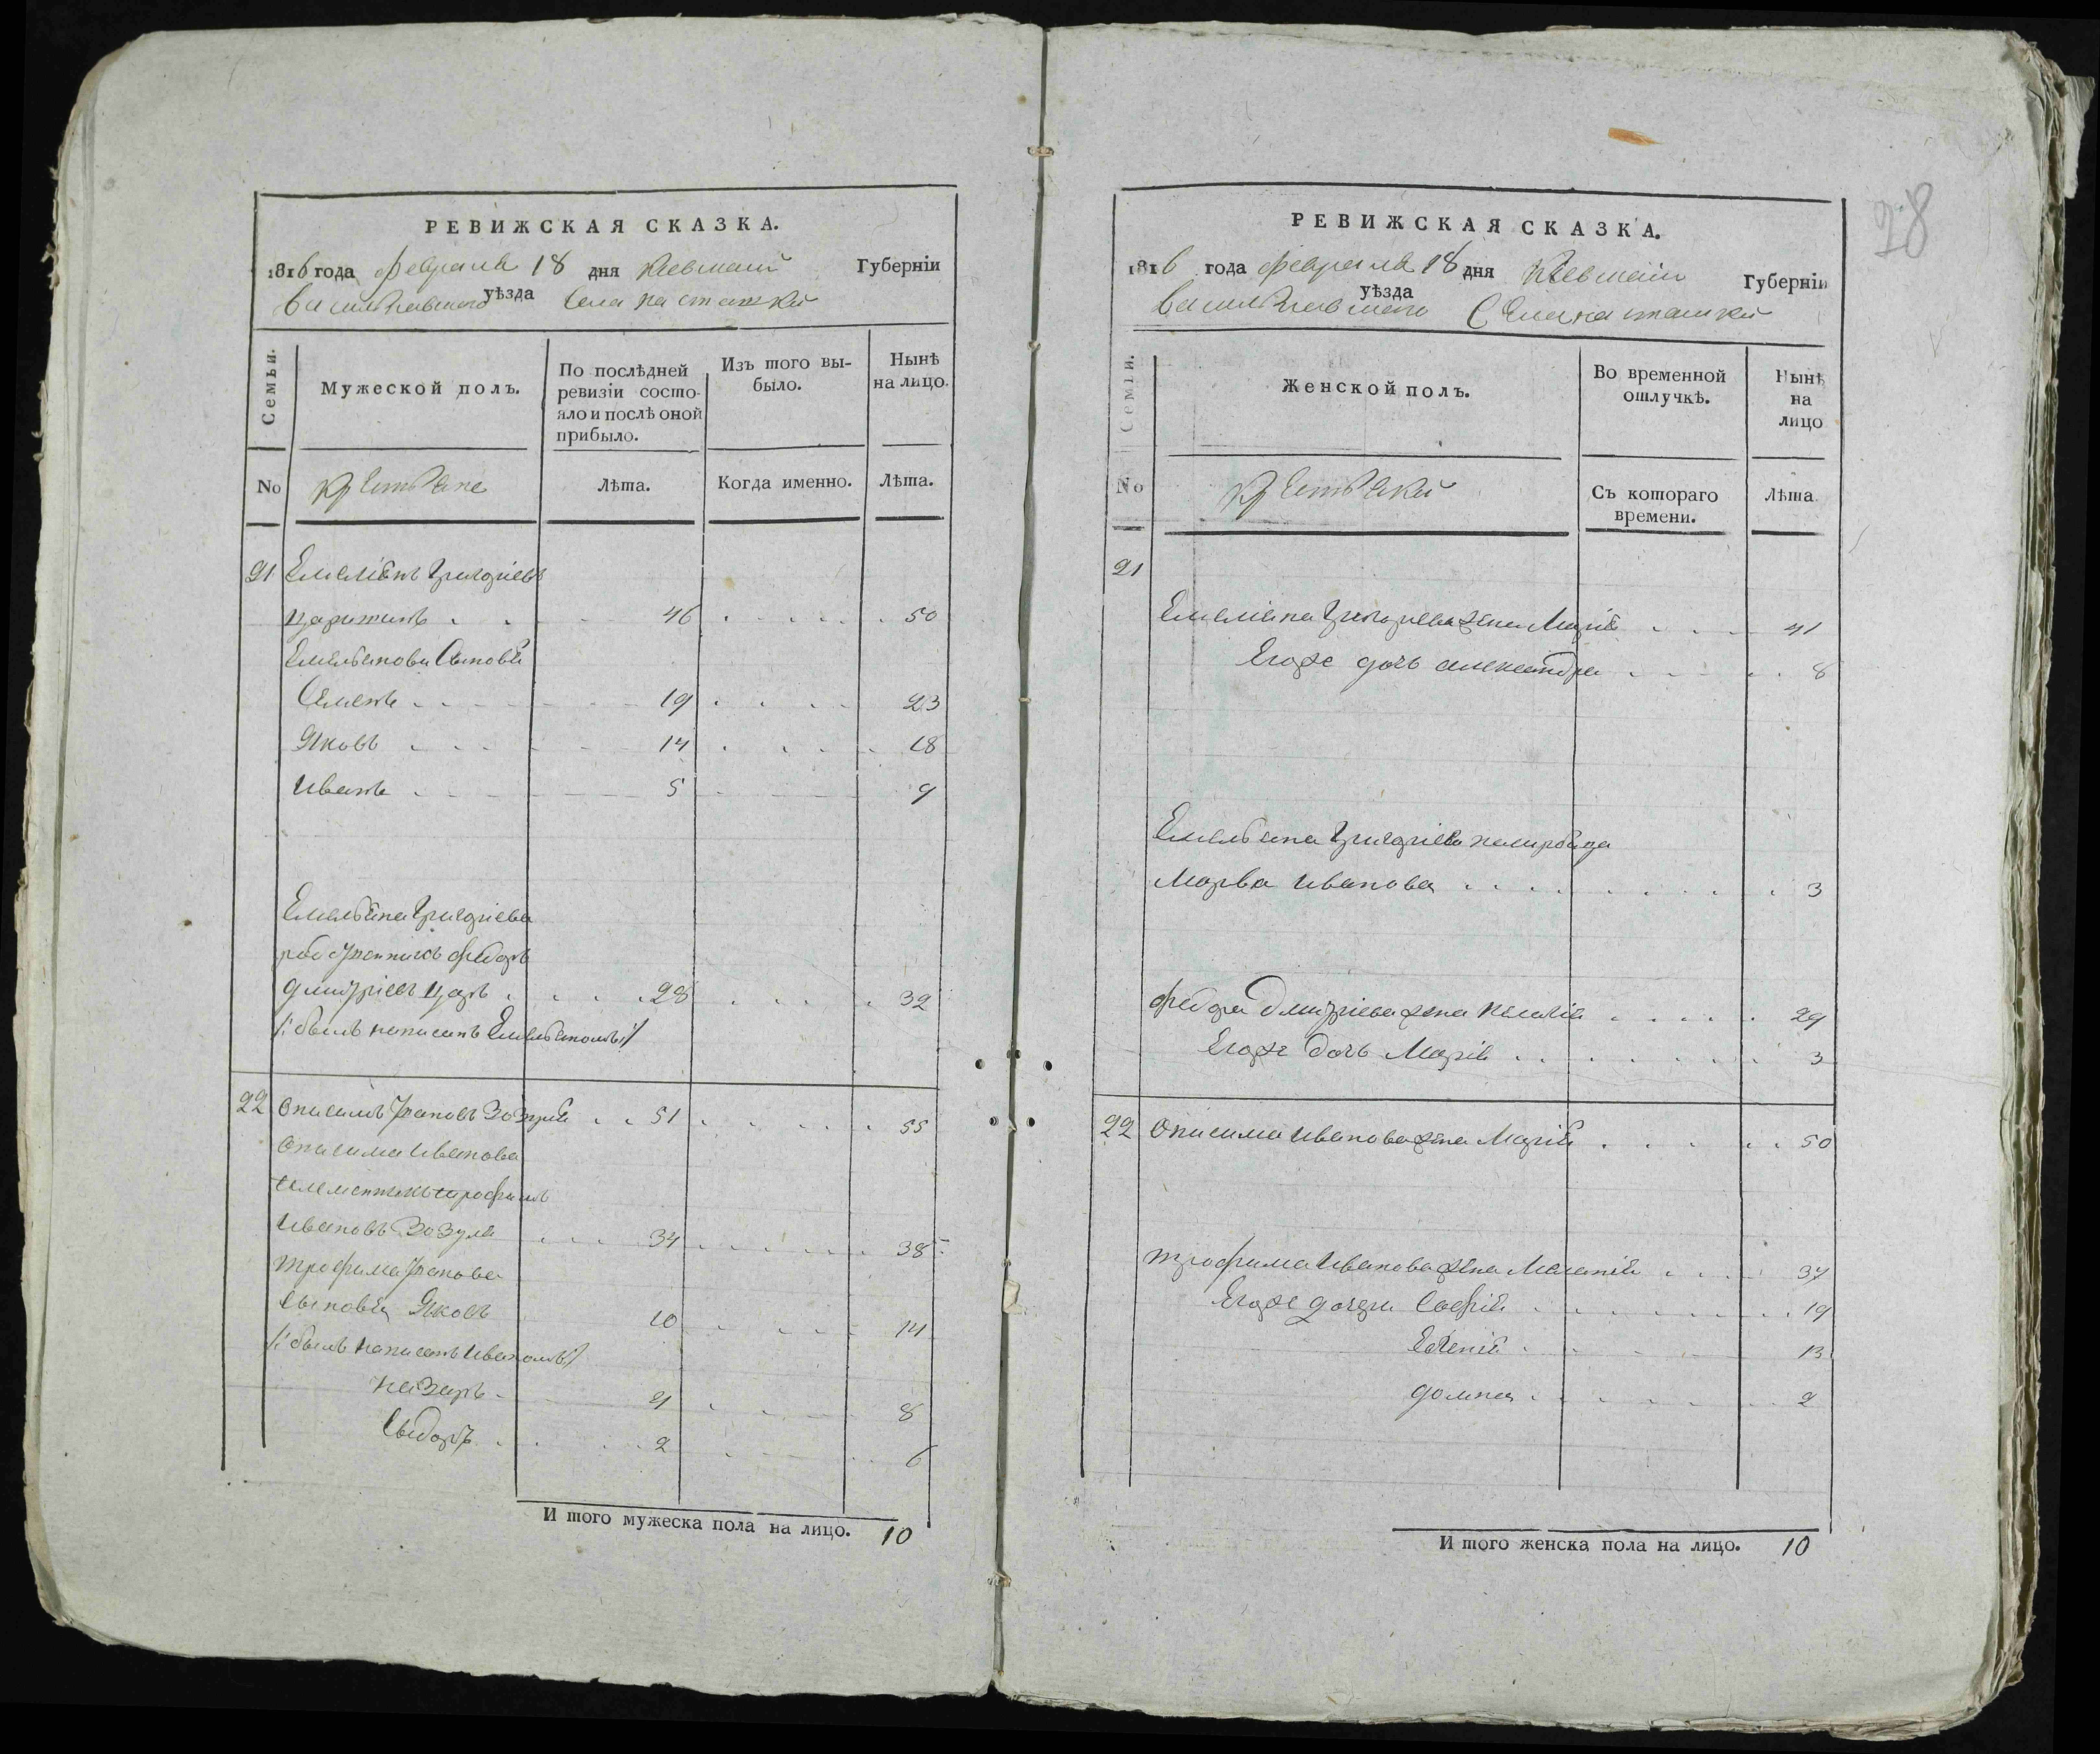 РЕВИЖСКАЯ СКАЗКА.
1816 года февраля 18 дня Киевской Губерніи
Васильковского уѣзда Села Насташки
Семьи.
Мужеской полъ.
По послѣдней ревизіи состояло и послѣ оной прибыло.
Изъ того выбыло.
Нынѣ на лицо.
No
Крестьяне
Лѣта.
Когда именно.
Лѣта.
21 Емеліянъ Григоріевъ
46 50
Емельянови Сыновья
Семенъ 19 23
Яковъ 14 18
Иванъ 5 9
Емельяна Григоріева
работникъ Федоръ
Дмитріевъ 28 32
/: былъ написанъ Емельяномъ :/
22 Онисимъ Ивановъ Зозуля 51 55
Онисима Иванова
племянникъ трофимъ
Ивановъ Зозуля 34 38
трофима Иванова
Сыновья Яковъ 10 14
/: былъ написанъ Иваномъ :/
Назаръ 4 8
Сидоръ 2 6
И того мужеска пола на лицо. 10
28
РЕВИЖСКАЯ СКАЗКА.
1816 года февраля 18 дня Киевской Губерніи
Васильковского уѣзда Села Насташки
Семьи.
Женской полъ.
Во временной отлучкѣ.
Нынѣ на лицо
No
Крестьянки
Съ котораго времени.
Лѣта.
21
Емеліяна Григоріева жена Марія 41
Егоже дочь александра 8
Емельяна Григоріева
Марва Иванова 3
Федора Дмитріева жена 29
Егоже дочь Марія 3
22 Онисима Иванова жена Марія 50
трофима Иванова жена Маланія 37
Егоже дочери Софія 19
Евгенія 13
домна 2
И того женска пола на лицо. 10